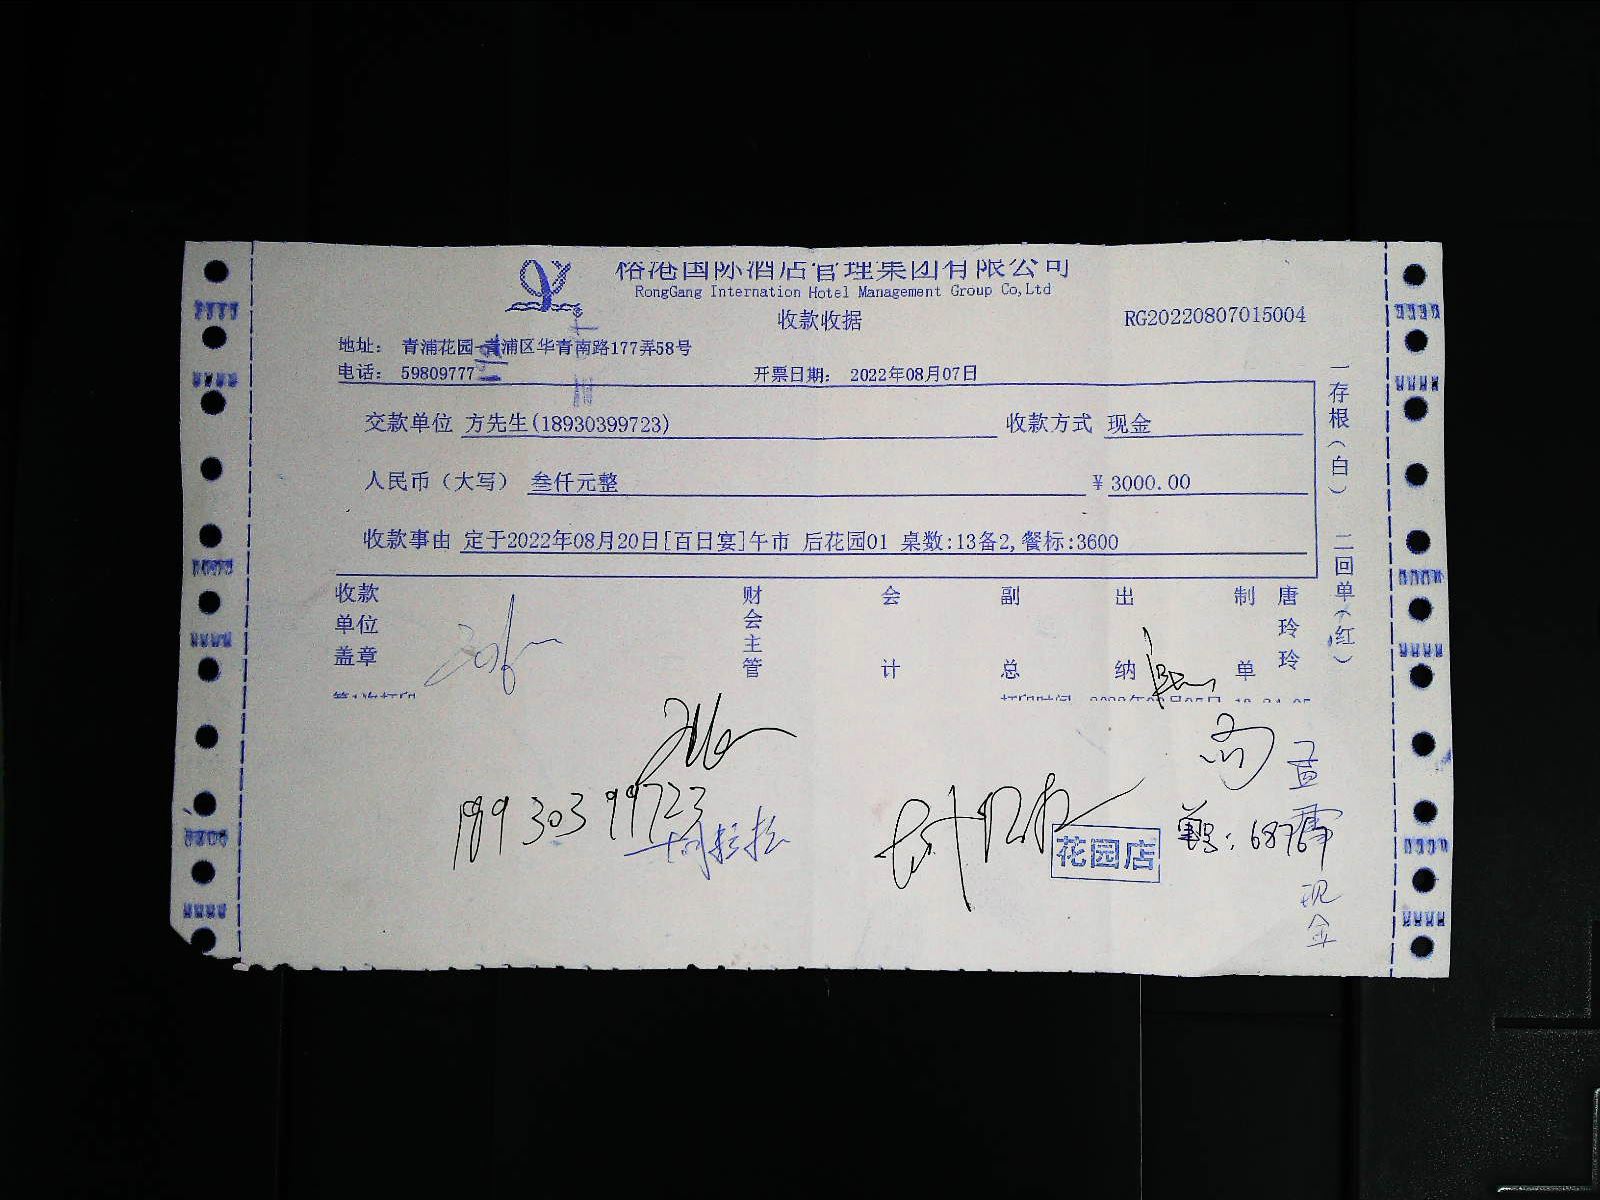 榕港国际酒店管理集团有限公司
RongGang Internation Hotel Management Group Co,Ltd
收款收据
RG20220807015004
地址： 青浦花园-青浦区华青南路177弄58号
电话： 59809777
开票日期： 2022年08月07日
交款单位 方先生(18930399723)
收款方式 现金
人民币（大写） 叁仟元整
¥ 3000.00
收款事由 定于2022年08月20日[百日宴]午市 后花园01 桌数:13备2,餐标:3600
一存根（白） 二回单（红）
收款单位盖章
财会主管
会计
副总
出纳
制单
唐玲玲
第1次打印
打印时间
花园店
现金